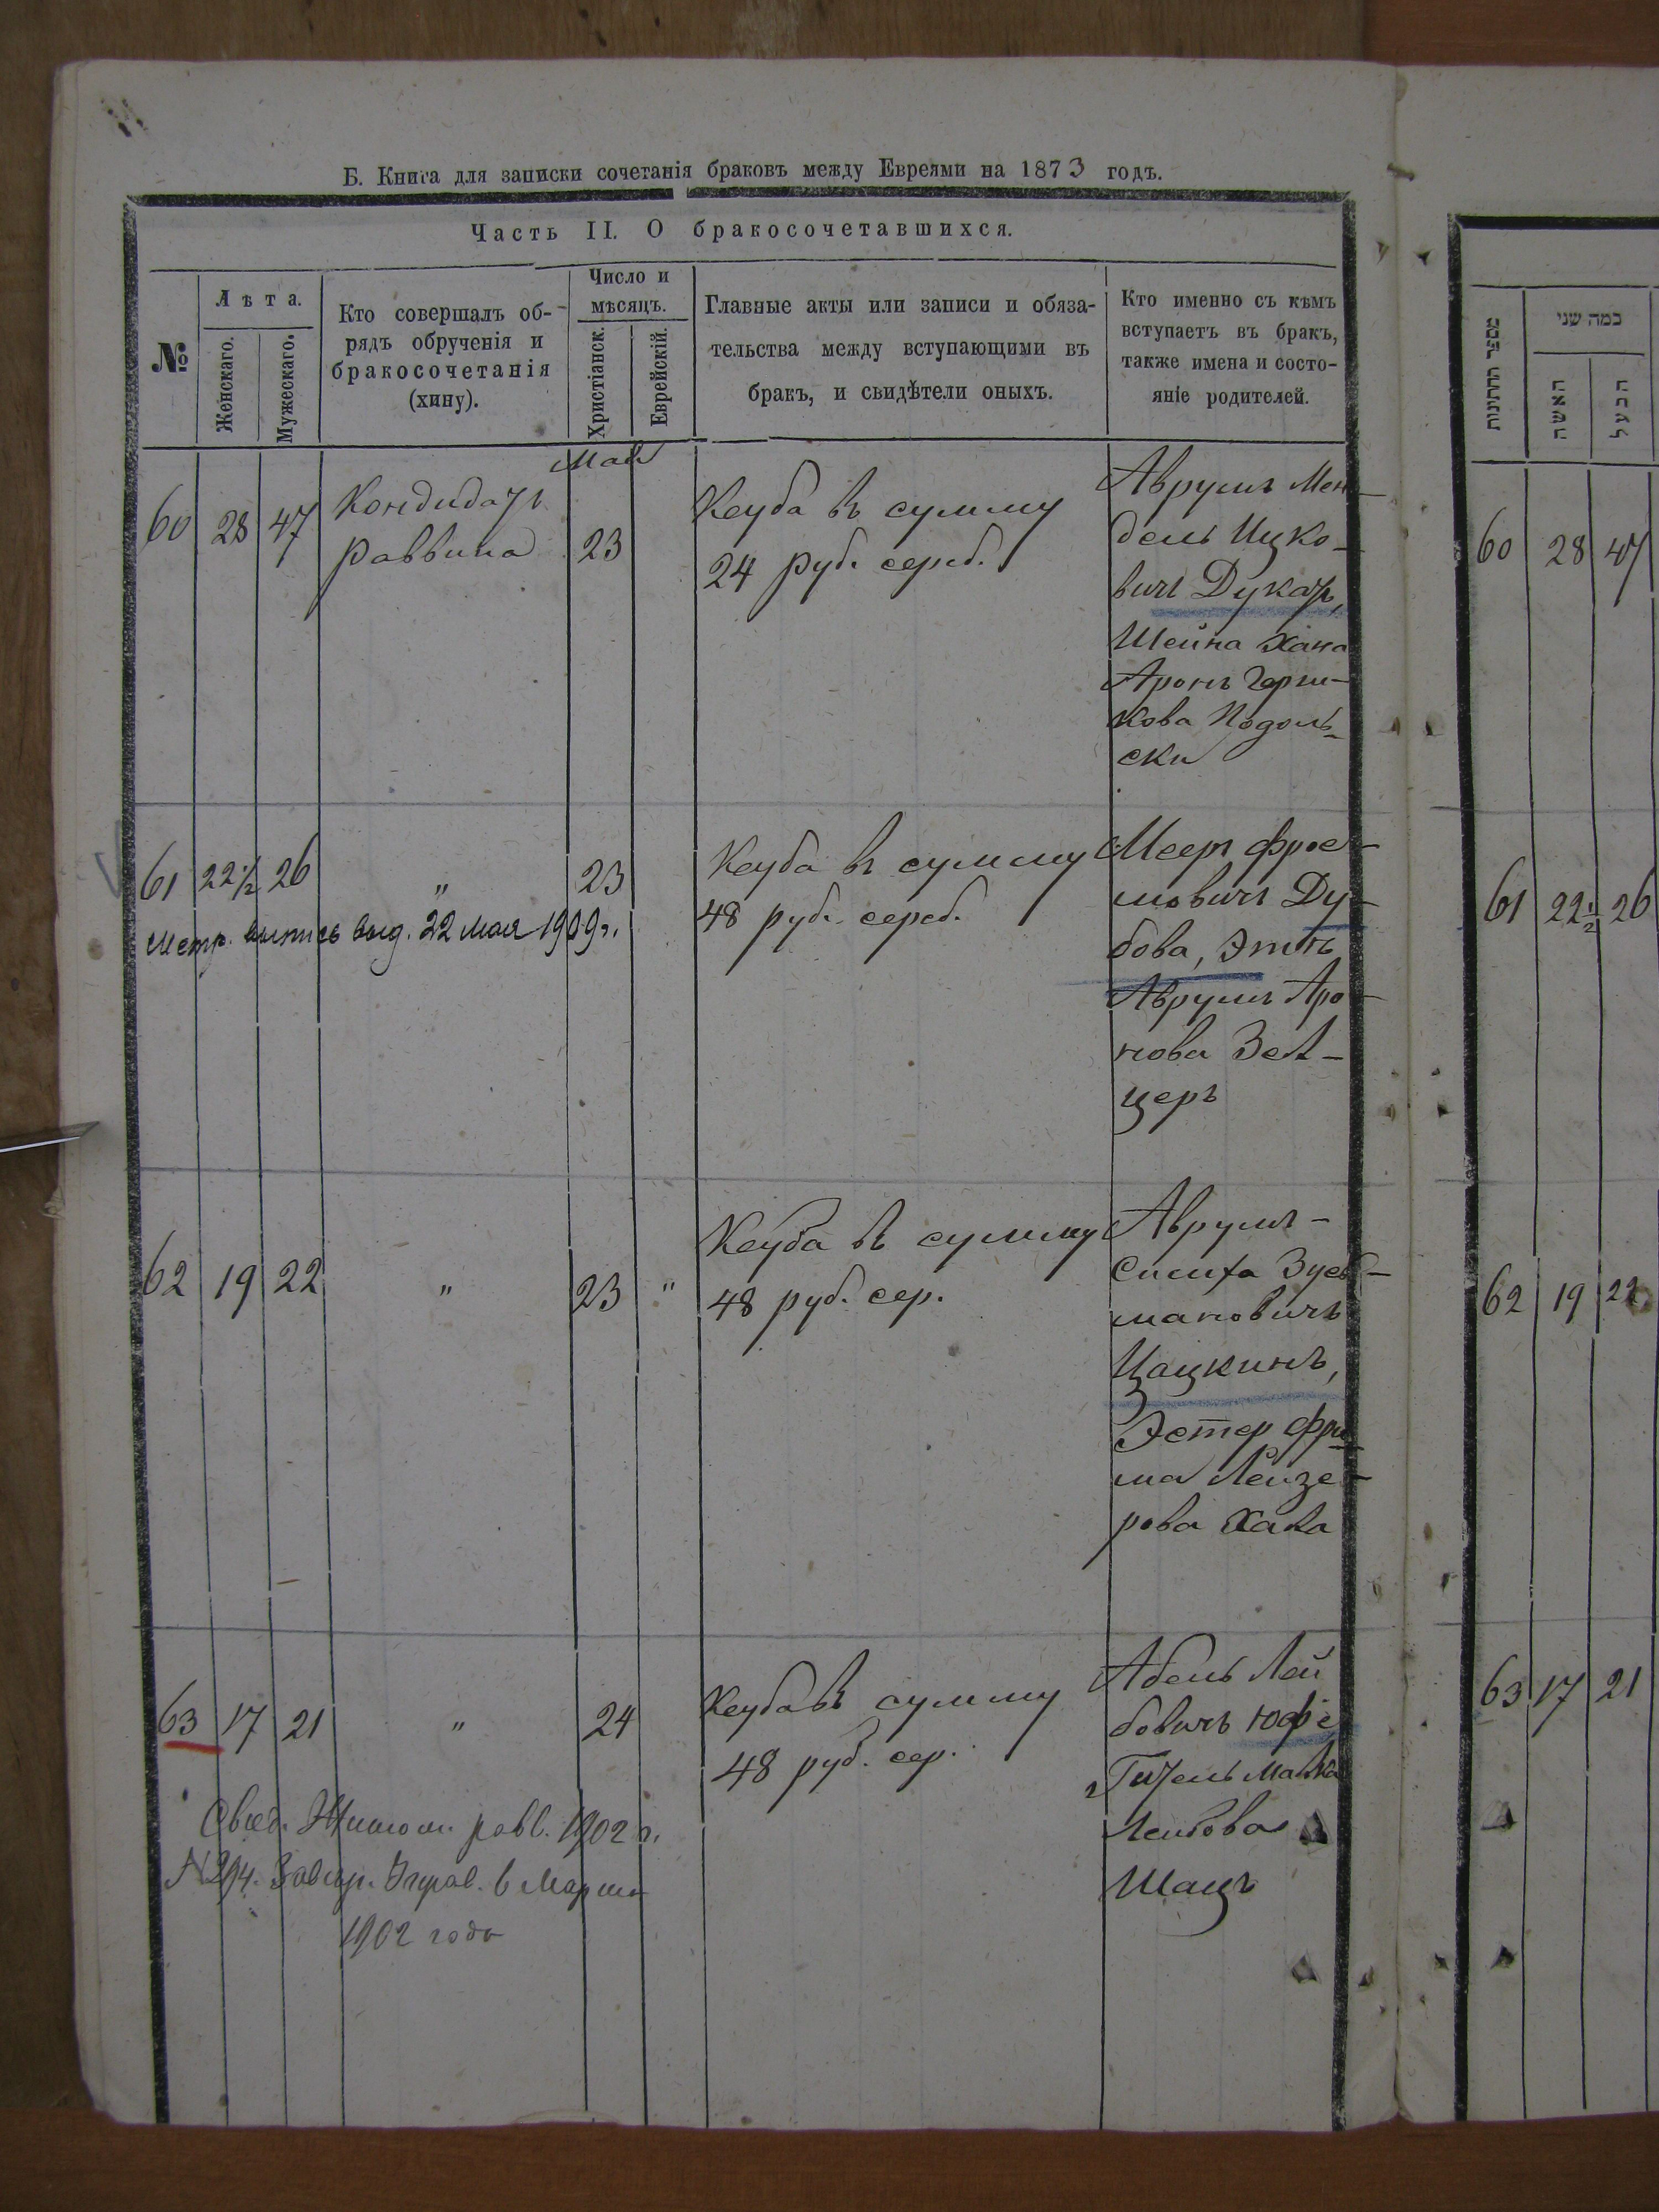 Б. Книга для записки сочетанія браковъ между Евреями на 1873 годъ.
Часть II. О бракосочетавшихся.
№
Лѣта.
Женскаго.
Мужескаго.
Кто совершалъ об-
рядъ обрученія и
бракосочетанія
(хину).
Число и
мѣсяцъ.
Христіанск.
Еврейскій.
Главные акты или записи и обяза-
тельства между вступающими въ
бракъ, и свидѣтели оныхъ.
Кто именно съ кѣмъ
вступаетъ въ бракъ,
также имена и состо-
яніе родителей.
Май
60 28 47
Кондидатъ
раввина
23
Кеуба въ сумму
24 руб. сереб.
Аврумъ Мен-
дель Ицко-
вичъ Дукатъ,
Шейна Хана
Аронъ Герш-
кова Подоль-
ски
61 22 1/2 26 " 23
Метр. выпись выд. 22 мая 1909 г.
Кеуба въ сумму
48 руб. сереб.
Мееръ Фрое-
мовичъ Ду-
бова, Этль
Аврумъ Аро-
нова Зел-
церъ
62 19 22 " 23 "
Кеуба въ сумму
48 руб. сер.
Аврумъ-
Симха Зусь-
мановичъ
Цацкинъ,
Эстер Фри-
ма Лейзе-
рова Хава
63 17 21 " 24
Кеуба въ сумму
48 руб. сер.
Абель Лей
бовичъ Юфе,
Гитель Малка
Лейбова
Шацъ
Свид. Житом. равв. 1902 г.
N 294.
в Марте
1902 года
מספר החתונות
כמה שני
האשה
הבעל
60 28 47
61 22 1/2 26
62 19 22
63 17 21